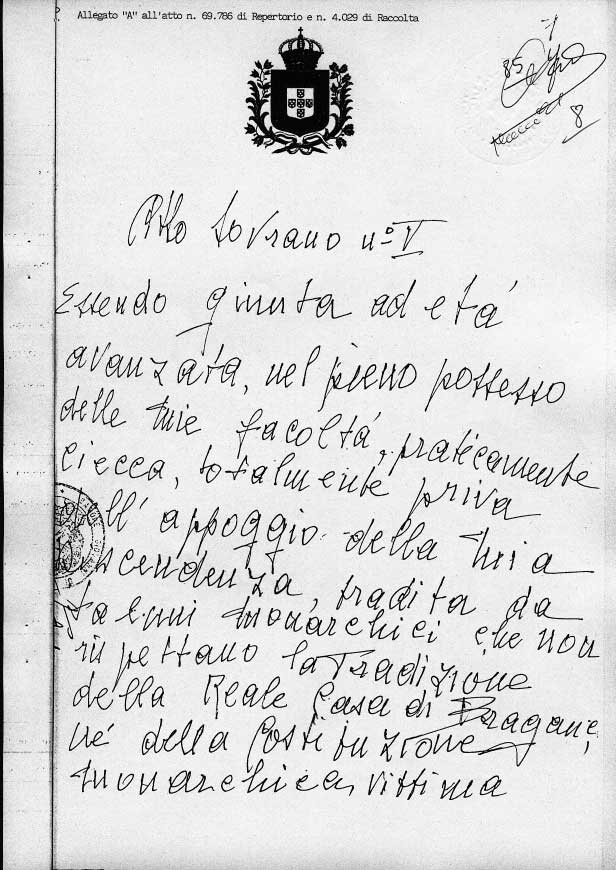 Allegato "A" all'atto n. 69.786 di Repertorio e n. 4.029 di Raccolta
85
8
Atto Sovrano nº V
Essendo giunta ad etá
avanzata, nel pieno possesso
delle mie facoltá, praticamente
ciecca, totalmente priva
dell' appoggio della mia
discendenza, tradita da
taluni monarchici che non
rispettano la Tradizione
della Reale Casa di Braganç,
né della Costituzione
monarchica, vittima